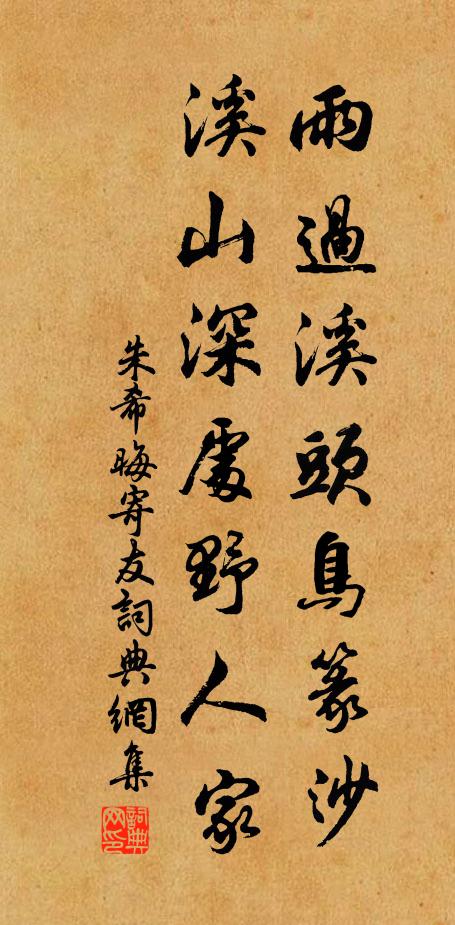 雨過溪頭鳥篆沙
溪山深處野人家
朱希晦寄友詞典網集
詞典網印